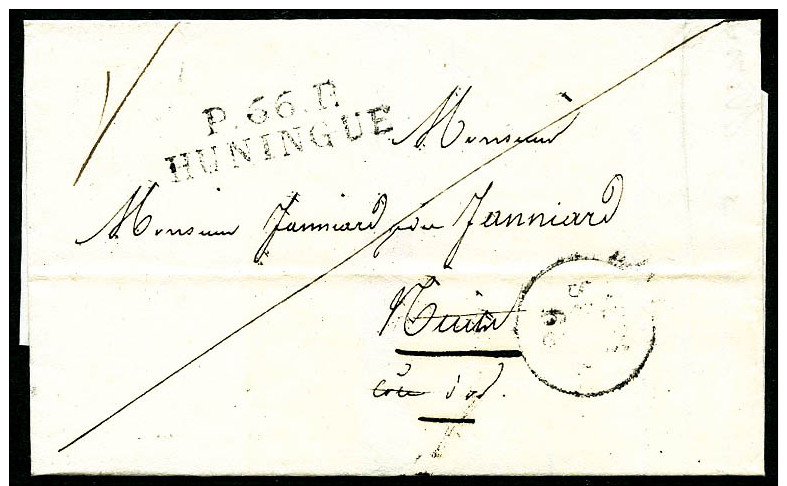 P.66.P.
HUNINGUE
Monsieur
Monsieur Janniard Janniard
Nuits
Côte d'or.